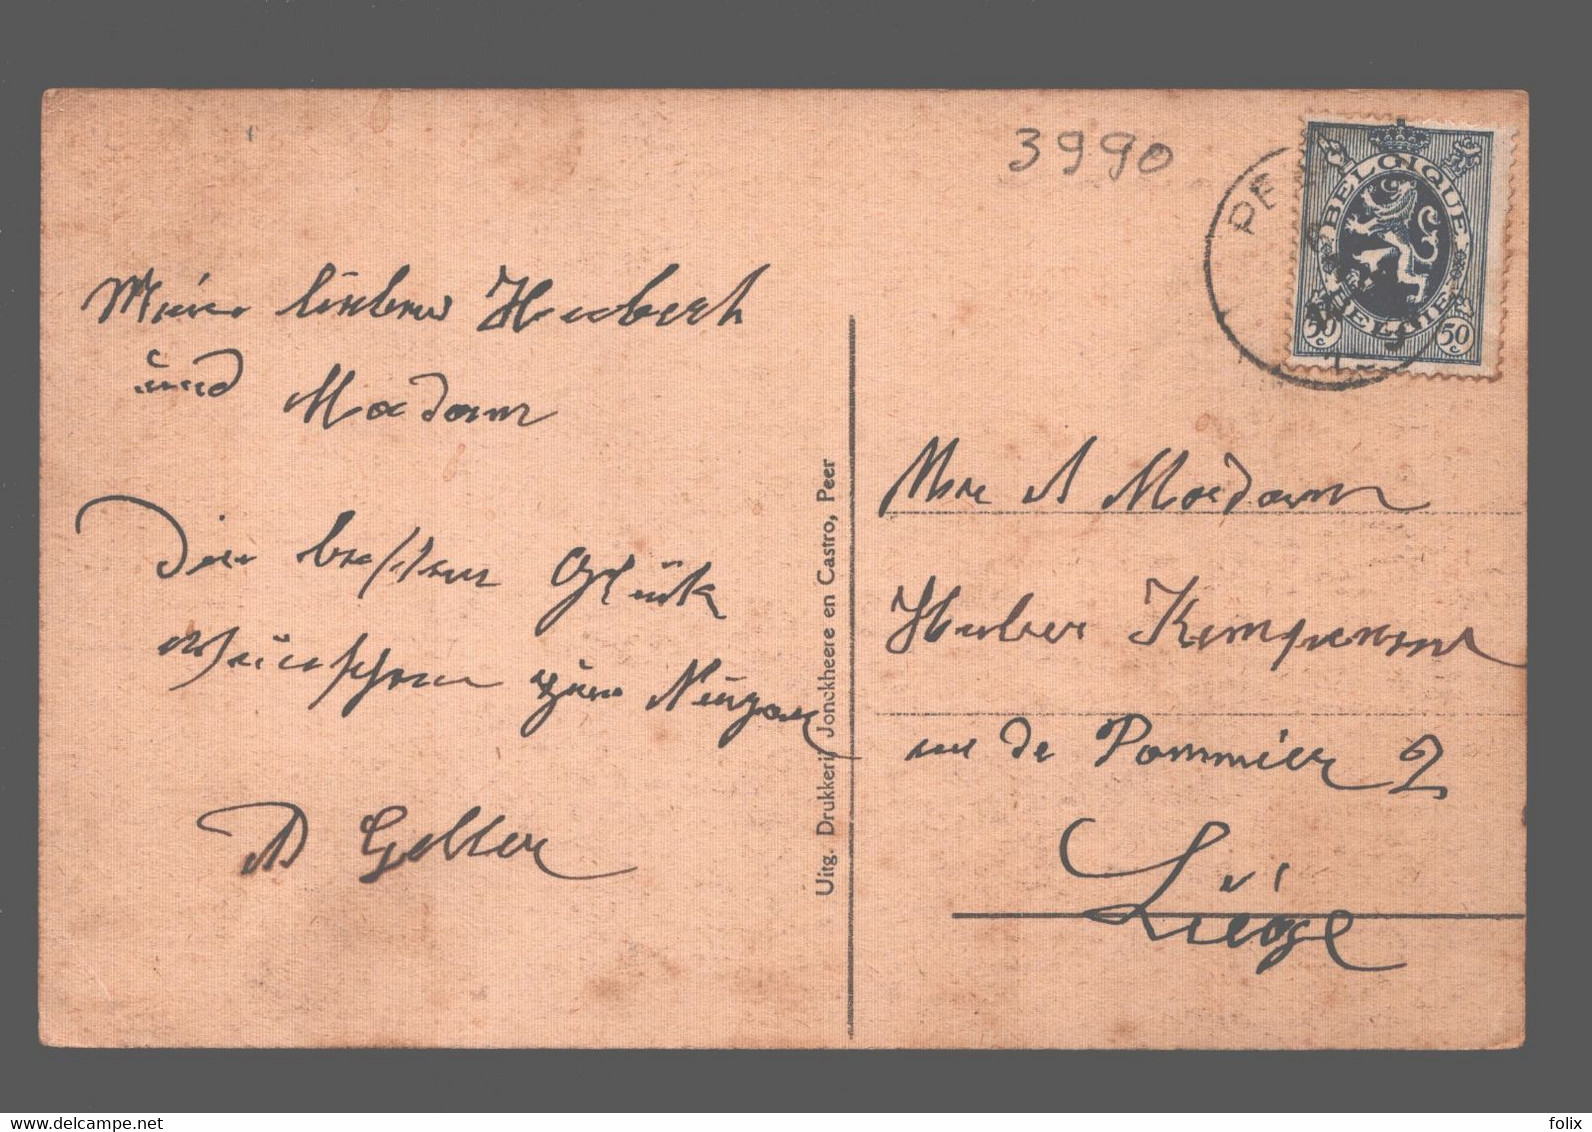 3990
PE
BELGIQUE
BELGIE
50 c 50 c
Meinen lieben Hubert
und Madam
Die besten Glück
wünschen zum Neujahr
A Geller
Uitg. Drukkerij Jonckheere en Castro, Peer
Mr et Madam
Huber
de Pommier 2
Liége
www.delcampe.net
folix